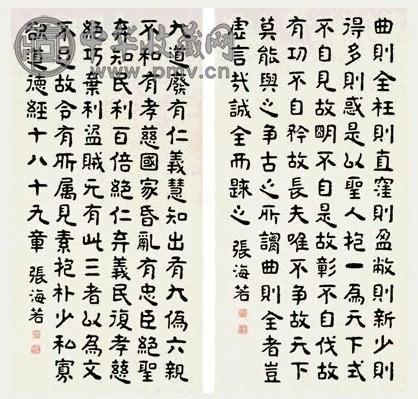 曲則全枉則直窪則盈敝則新少則
得多則惑是以聖人抱一為天下式
不自見故明不自是故彰不自伐故
有功不自矜故長夫唯不爭故天下
莫能與之爭古之所謂曲則全者豈
虛言哉誠全而歸之 張海若
大道廢有仁義慧知出有大偽六親
不和有孝慈國家昏亂有忠臣絕聖
弃知民利百倍絕仁弃義民復孝慈
絕巧棄利盜賊无有此三者以為文
不足故令有所属見素抱朴少私寡
欲道德經十八十九章 張海若
中华收藏网
www.pmv.cn